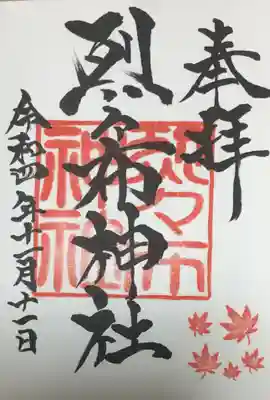 奉拝
烈々布神社
烈々布
神社
令和四年十一月十一日